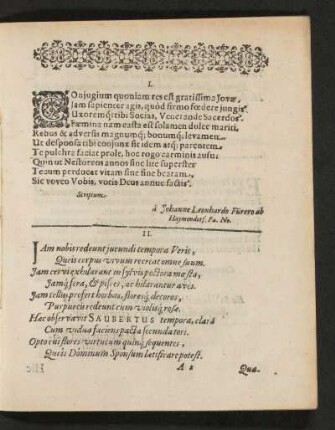 I.
COnjugium quoniam res est gratissima Jovæ,
Jam sapienter agis, quòd firmo fœdere jungis
Uxoremq; tibi Socias, Venerande Sacerdos.
Fœmina nam casta est solamen dulce mariti,
Rebus & adversis magnumq; bonumq; levamen.
Ut desponsa tibi conjunx sit idem atq; parentem
Te pulchra faciat prole, hoc rogo carminis ausu:
Quin ut Nestoreos annos sine lite superstes
Tecum perducat vitam sine fine beatam.
Sic voveo Vobis, votis Deus annue factis.
Scriptum
à Johanne Leonhardo Fürero ab
Haymendorf, Pa. No.
II.
IAm nobis redeunt jucundi tempora Veris,
Queis corpus vivum recreat omne suum.
Jam cervi exhilarant in sylvis pectora mœsta,
Jamq; feræ, & pisces, ac hilarantur aves.
Jam tellus profert herbas, floresq; decoros,
Purpureis redeunt cum violisq; rosæ.
Hæc observavit SAUBERTUS tempora, clarâ
Cum viduâ faciens pacta secunda tori.
Opto cui flores virtutum quinq; sequentes,
Queis Dominum Sponsum lætificare potest.
A 2
Qua-